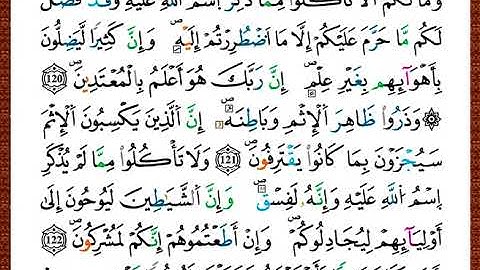 وَمَا لَكُمُ أَلَّا تَأْكُلُوا۟ مِمَّا ذُكِرَ اَسْمُ اُللَّهِ عَلَيْهِ وَقَدْ فَصَّلَ
لَكُم مَّا حَرَّمَ عَلَيْكُمُ إِلَّا مَا اَضْطُرِرْتُمُ إِلَيْهِ وَإِنَّ كَثِيرًا لَّيَضِلُّونَ
بِأَهْوَآئِهِم بِغَيْرِ عِلْمٍ إِنَّ رَبَّكَ هُوَ أَعْلَمُ بِالْمُعْتَدِينَ 120
۞ وَذَرُوا۟ ظَاهِرَ اَلْإِثْمِ وَبَاطِنَهُ إِنَّ اَلَّذِينَ يَكْسِبُونَ اَلْإِثْمَ
سَيُجْزَوْنَ بِمَا كَانُوا۟ يَقْتَرِفُونَ 121 وَلَا تَأْكُلُوا۟ مِمَّا لَمْ يُذْكَرِ
اِسْمُ اُللَّهِ عَلَيْهِ وَإِنَّهُ لَفِسْقٌ وَإِنَّ اَلشَّيَٰطِينَ لَيُوحُونَ إِلَىٰ
أَوْلِيَآئِهِمْ لِيُجَٰدِلُوكُمْ وَإِنَ اَطَعْتُمُوهُمُ إِنَّكُمْ لَمُشْرِكُونَ 122